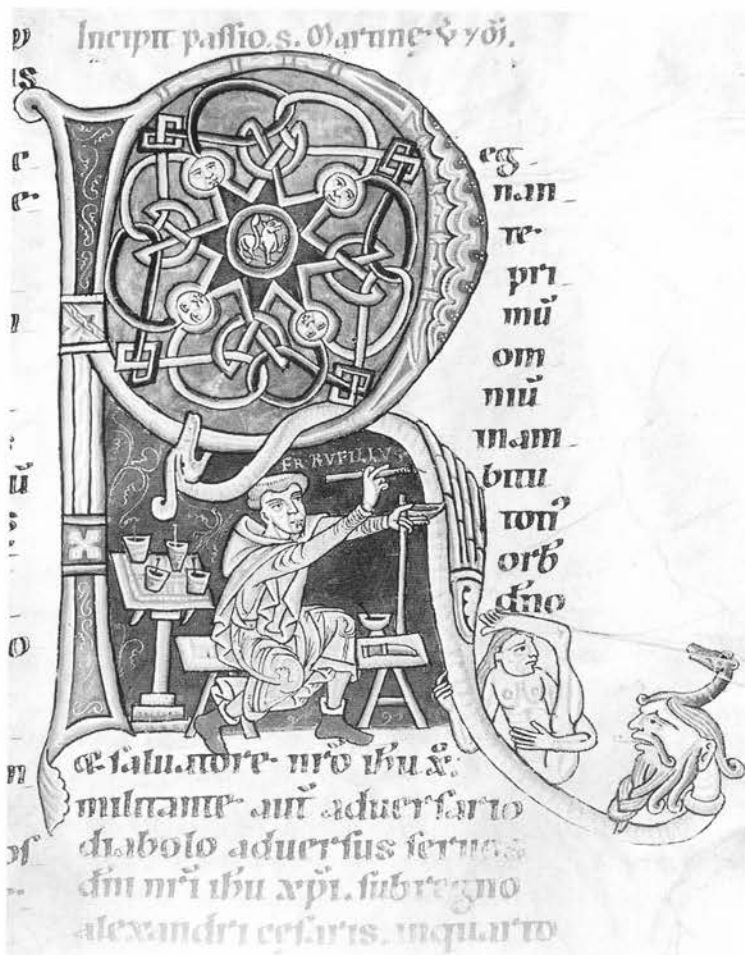 Incipit passio. s. Martine.
R
eg
nan
te.
pri
mū
om
niū
inam
bitu
orb
dn̄o
FR RVFILLVS
& saluatore nr̄o ih̄u x̄.
militante aut̄ aduersario
diabolo aduersus seruos
dn̄i nr̄i ih̄u xp̄i. sub regno
alexandri cęsaris. inquarto